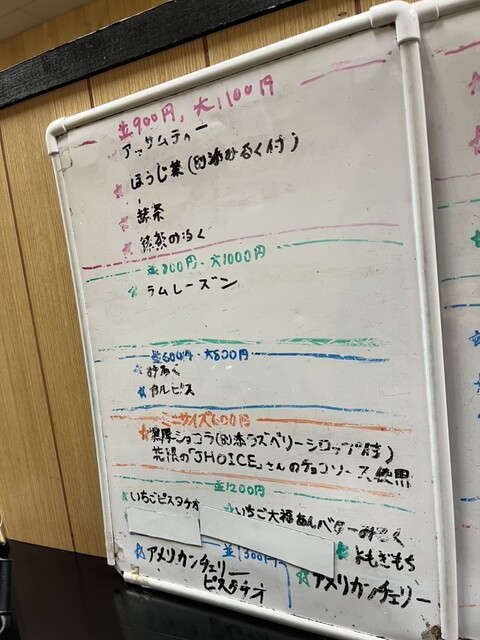 並900円，大1100円
アッサムティー
☆ほうじ茶(別添みるく付)
☆抹茶
☆抹茶みるく
並800円・大1000円
☆ラムレーズン
並600円・大800円
☆みるく
☆カルピス
ミニサイズ600円
☆濃厚ショコラ(別添ラズベリーシロップ付)
「JHOICE」さんのチョコソース使用
並1200円
☆いちごピスタチオ
☆いちご大福あんバターみるく
☆よもぎもち
並1300円
☆アメリカンチェリー
ピスタチオ
☆アメリカンチェリー